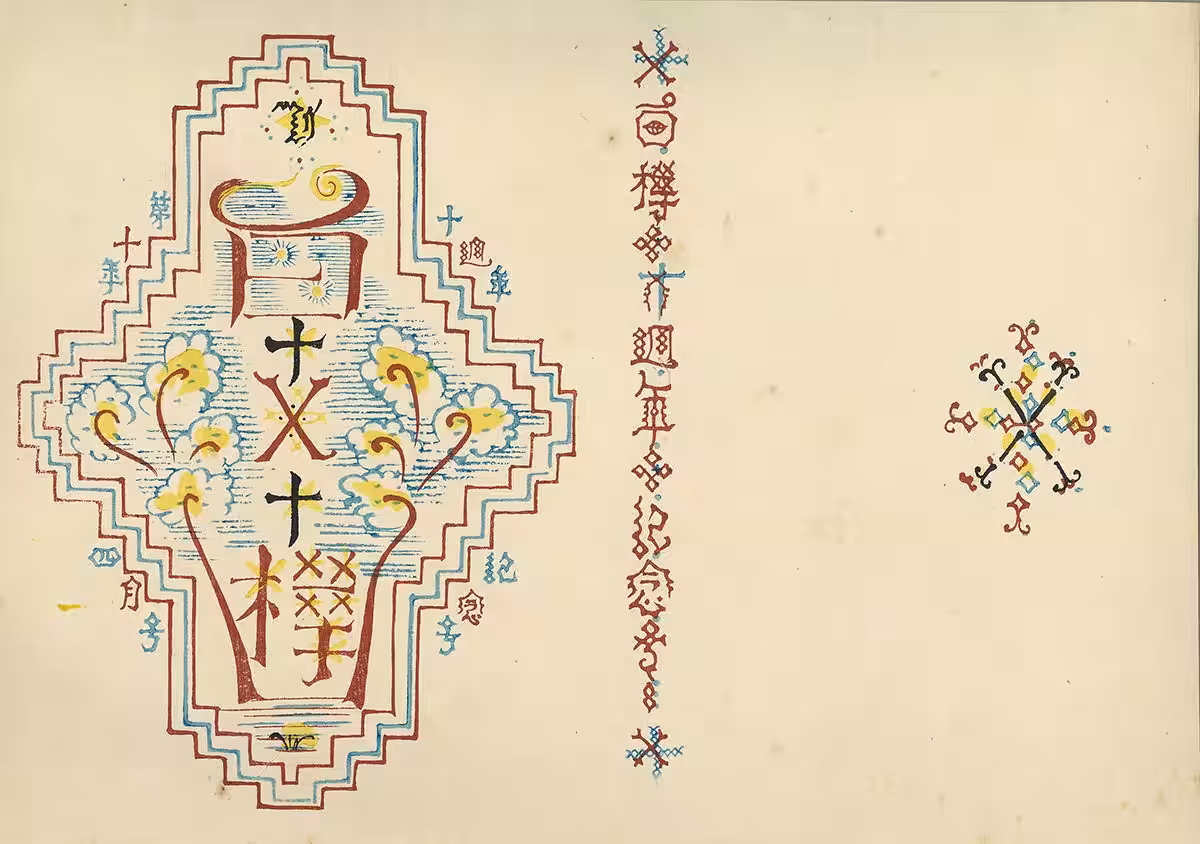 白樺
十週年
記念号
第十年
四月号
白樺十週年記念号